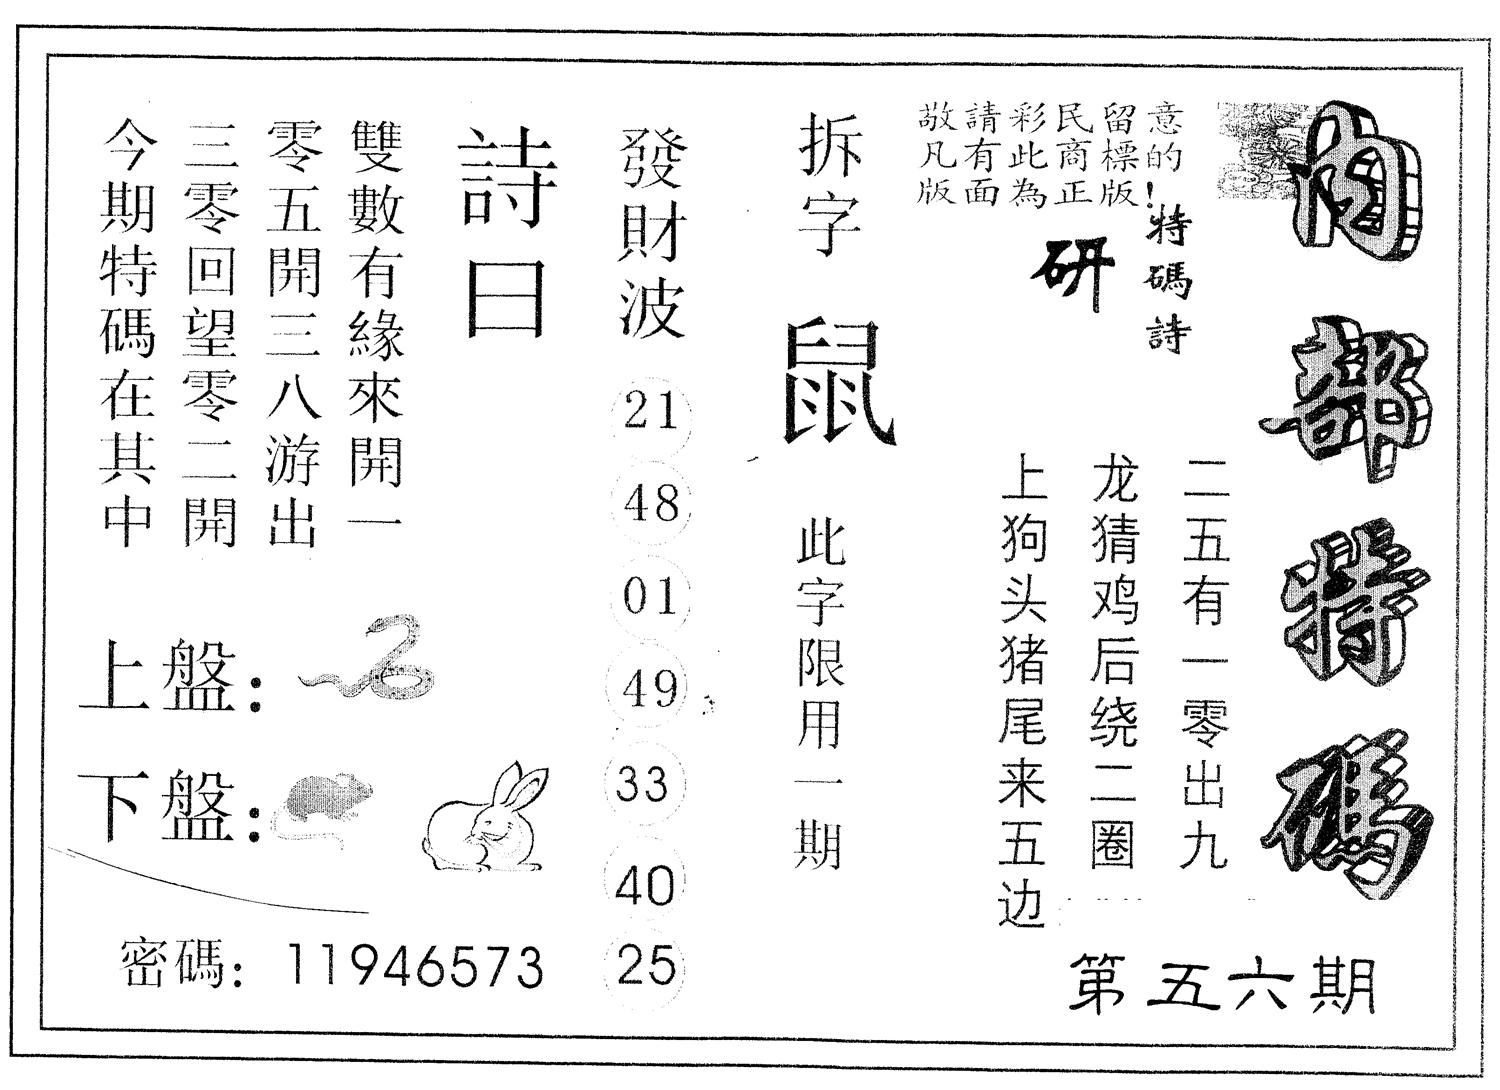 內部特碼
敬請彩民留意
凡有此商標的
版面為正版!
特碼詩
研
二五有一零出九
龙猜鸡后绕二圈
上狗头猪尾来五边
第五六期
拆字
鼠
此字限用一期
發財波
21
48
01
49
33
40
25
詩曰
雙數有緣來開一
零五開三八游出
三零回望零二開
今期特碼在其中
上盤:
下盤:
密碼: 11946573